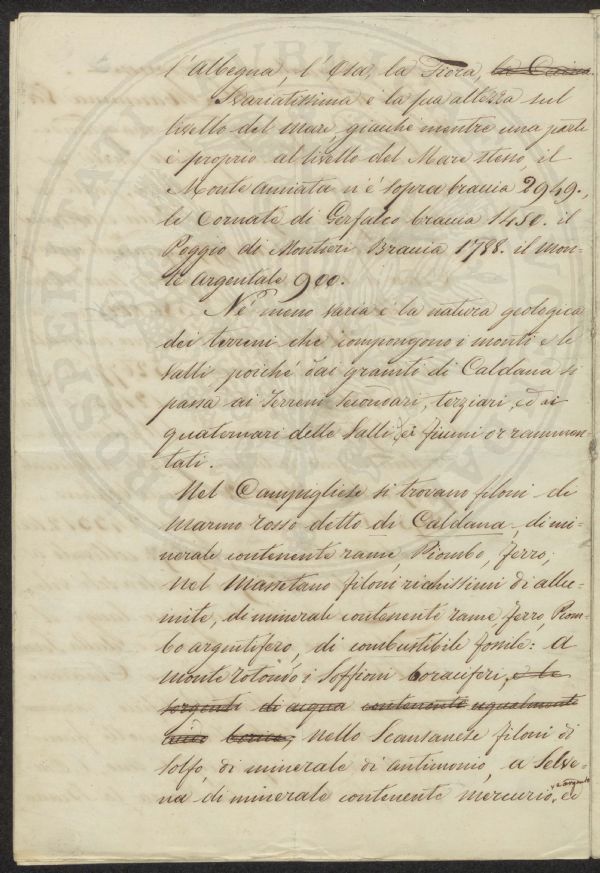 l'Albegna, l'Osa, la Fiora, la Casina.
Svariatissima è la sua altezza sul
livello del mare, giacchè mentre una parte
è proprio al livello del Mare stesso, il
Monte Amiata n'è sopra braccia 2949.,
le Cornate di Gerfalco braccia 1480. il
Poggio di Montieri Braccia 1788. il Mon-
te Argentale 900.
Nè meno varia è la natura geologica
dei terreni che compongono i monti e le
Valli poichè dai graniti di Caldana si
passa ai Terreni Secondari, terziari, ed ai
quaternari delle Valli, ei fiumi or rammen-
tati.
Nel Campigliese si trovano filoni di
marmo rosso detto di Caldana, di mi-
nerale contenente rame, Piombo, ferro;
nel Massetano filoni ricchissimi di allu-
mite, di minerale contenenti rame, ferro, Piom-
bo argentifero, di combustibile fossile: a
monterotondo i Soffioni boraciferi, e le
sorgenti di acqua contenente ugualmente
acido borico; nello Scansanese filoni di
Solfo, di minerale di antimonio, a Selve-
na di minerale contenente mercurio, ed